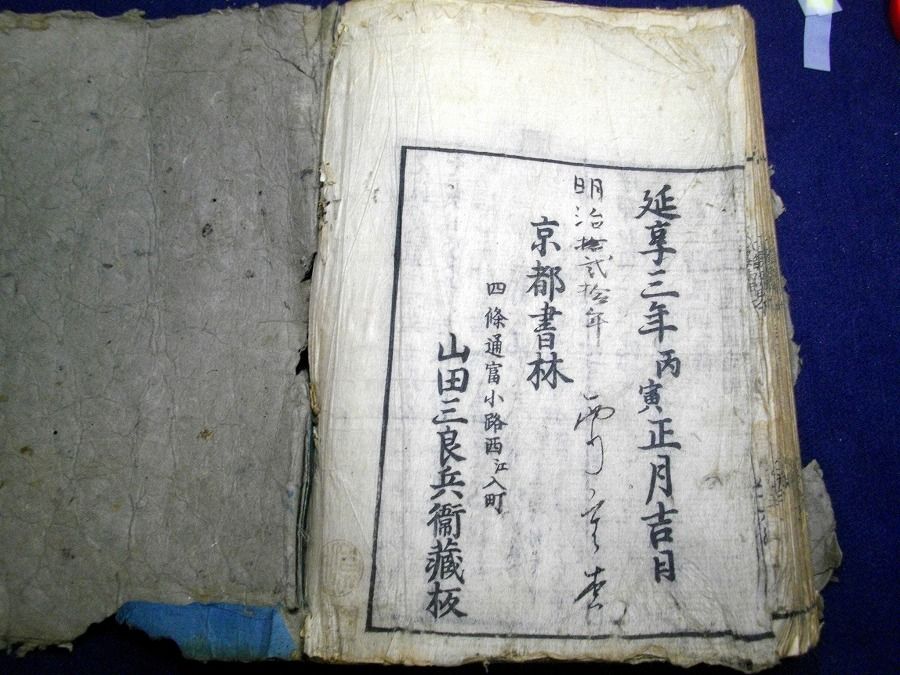 延享三年丙寅正月吉日
明治拾貳拾年
京都書林
四條通富小路西江入町
山田三良兵衞藏板